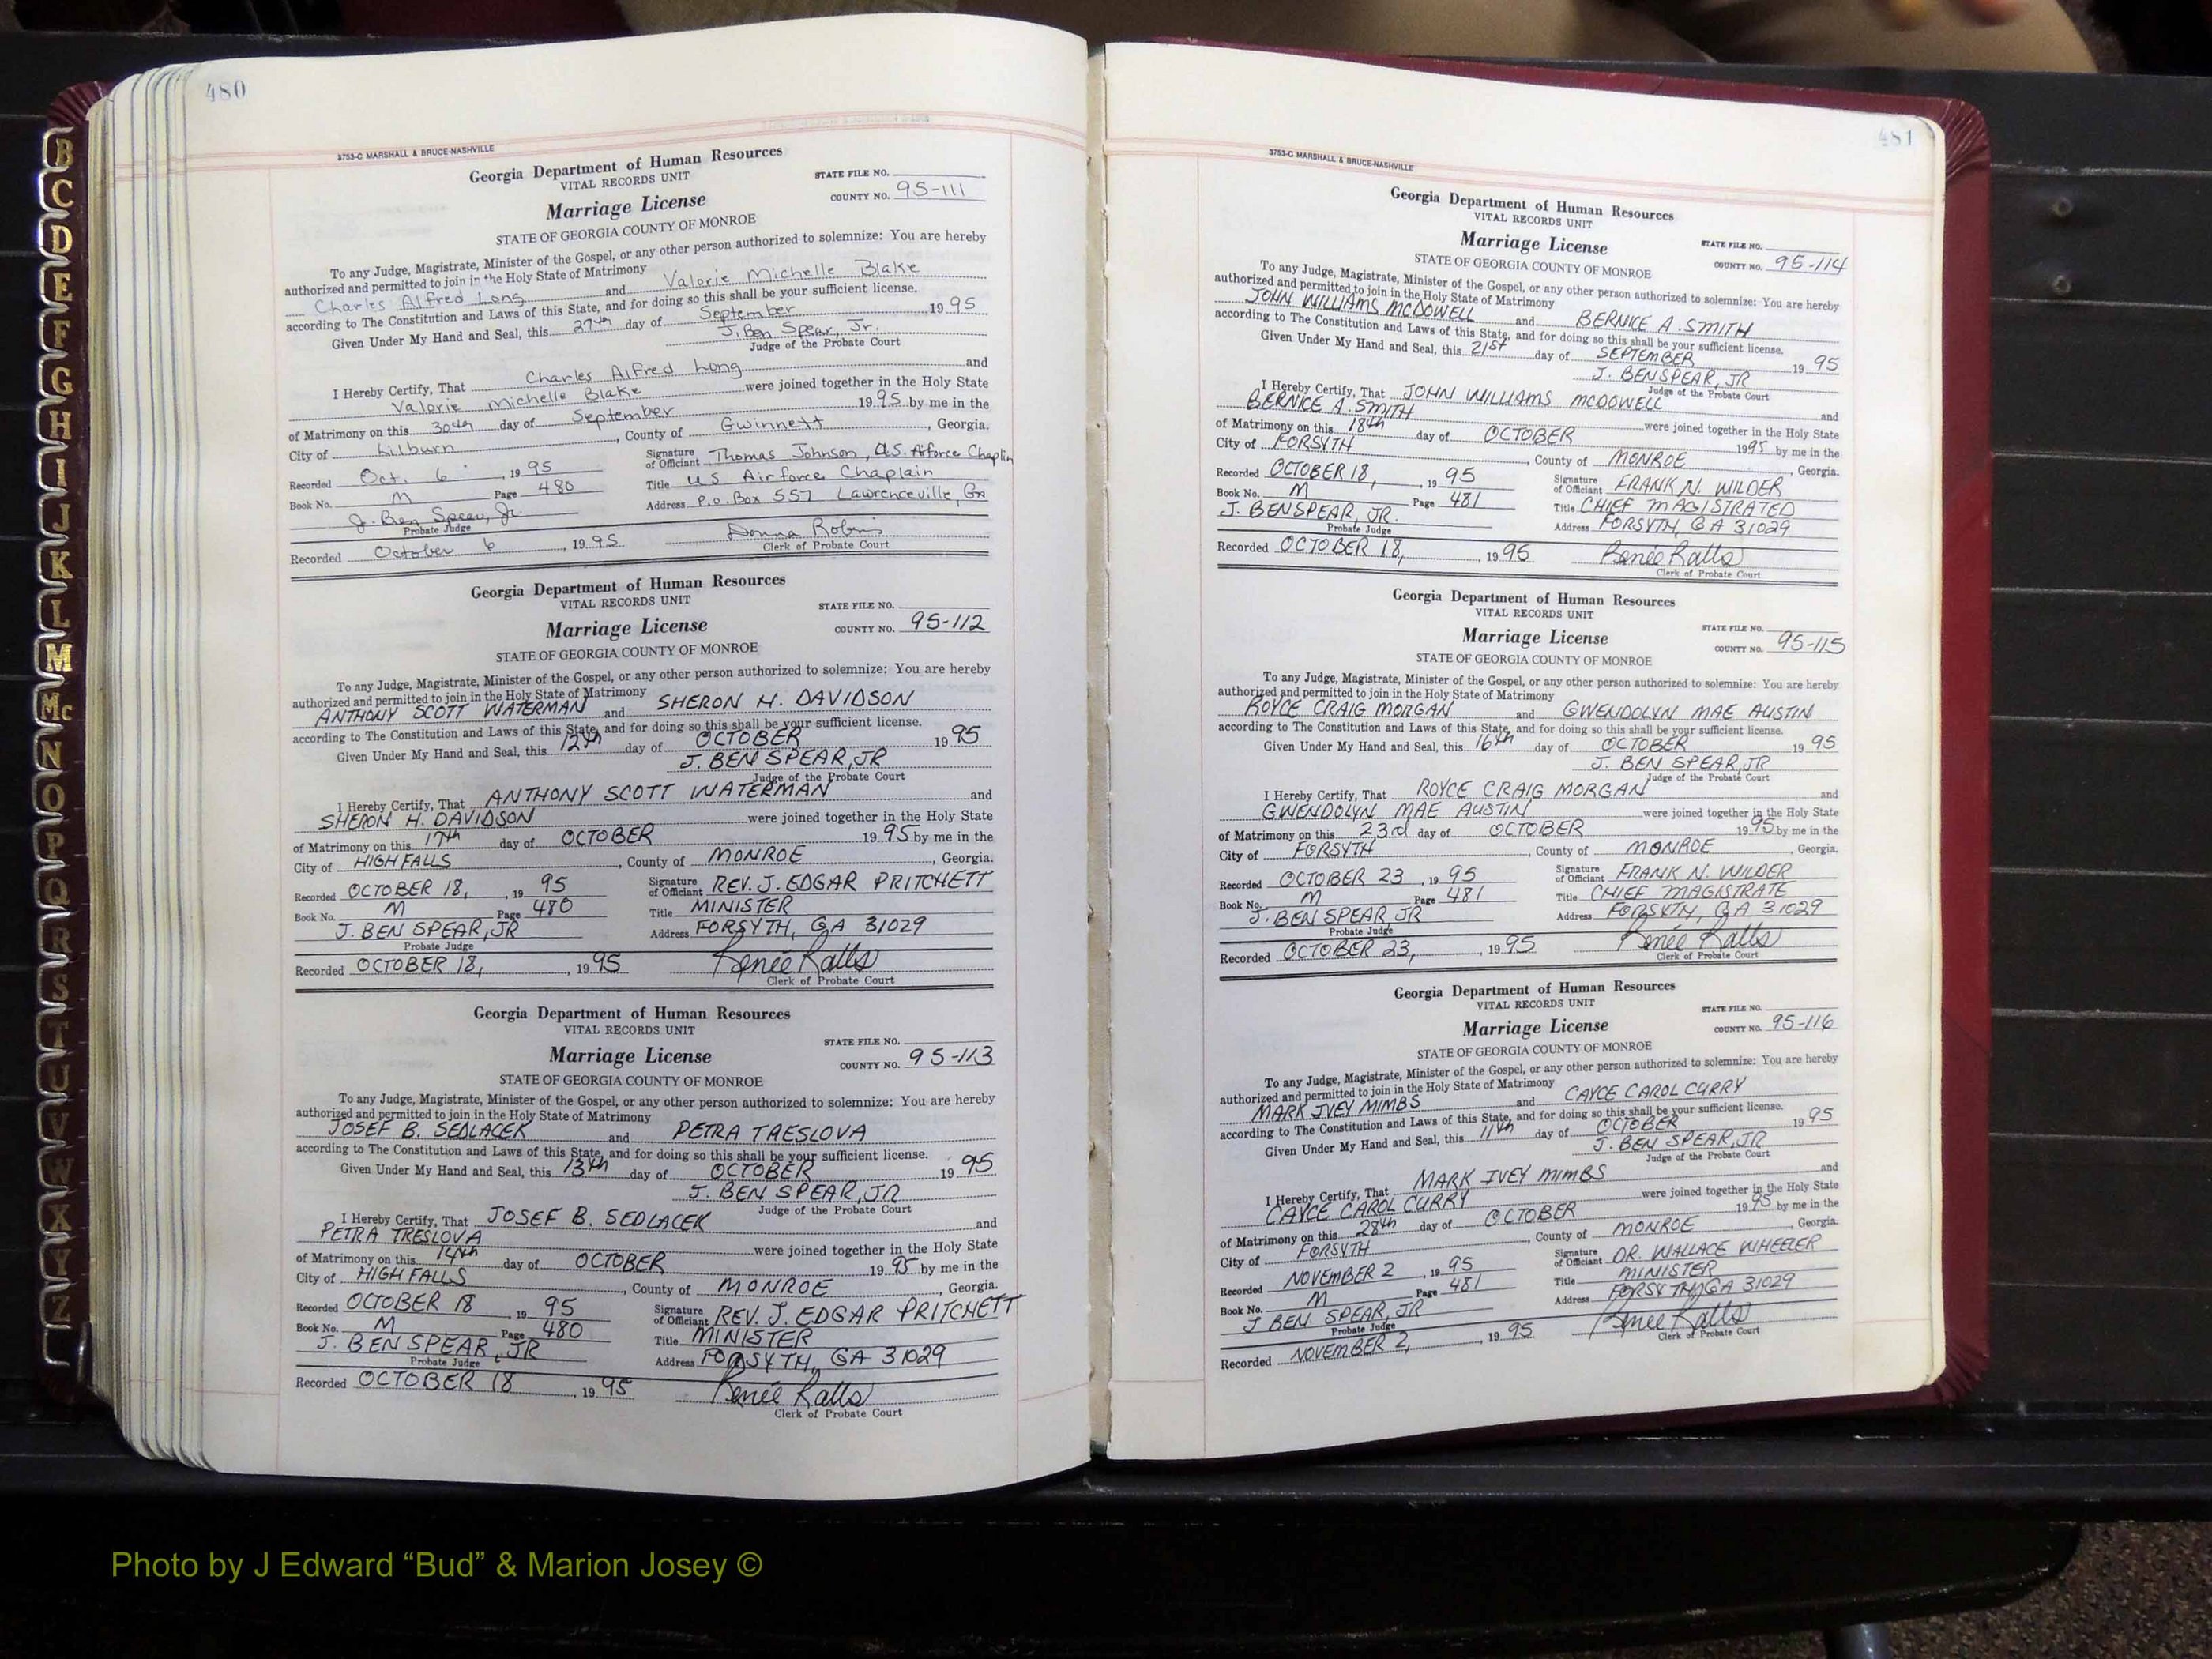 B
C
D
E
F
G
H
I
J
K
L
M
Mc
N
O
P
Q
R
S
T
U
V
W
X
Y
Z
480
3753-C MARSHALL & BRUCE-NASHVILLE
Georgia Department of Human Resources
VITAL RECORDS UNIT
STATE FILE NO.
Marriage License
COUNTY NO. 95-111
STATE OF GEORGIA COUNTY OF MONROE
To any Judge, Magistrate, Minister of the Gospel, or any other person authorized to solemnize: You are hereby
authorized and permitted to join in the Holy State of Matrimony
Charles Alfred Long and Valorie Michelle Blake
according to The Constitution and Laws of this State, and for doing so this shall be your sufficient license.
Given Under My Hand and Seal, this 27th day of September 1995
J. Ben Spear, Jr.
Judge of the Probate Court
I Hereby Certify, That Charles Alfred Long and
Valorie Michelle Blake were joined together in the Holy State
of Matrimony on this 30th day of September 1995 by me in the
City of Lilburn, County of Gwinnett, Georgia.
Recorded Oct. 6, 1995
Signature of Officiant Thomas Johnson, U.S. Airforce Chaplin
Book No. M Page 480
Title US Airforce Chaplain
J. Ben Spear, Jr.
Address P.O. Box 557 Lawrenceville, Ga
Probate Judge
Recorded October 6, 1995
Donna Robins
Clerk of Probate Court
Georgia Department of Human Resources
VITAL RECORDS UNIT
STATE FILE NO.
Marriage License
COUNTY NO. 95-112
STATE OF GEORGIA COUNTY OF MONROE
To any Judge, Magistrate, Minister of the Gospel, or any other person authorized to solemnize: You are hereby
authorized and permitted to join in the Holy State of Matrimony
ANTHONY SCOTT WATERMAN and SHERON H. DAVIDSON
according to The Constitution and Laws of this State, and for doing so this shall be your sufficient license.
Given Under My Hand and Seal, this 12th day of OCTOBER 1995
J. BEN SPEAR, JR
Judge of the Probate Court
I Hereby Certify, That ANTHONY SCOTT WATERMAN and
SHERON H. DAVIDSON were joined together in the Holy State
of Matrimony on this 17th day of OCTOBER 1995 by me in the
City of HIGH FALLS, County of MONROE, Georgia.
Recorded OCTOBER 18, 1995
Signature of Officiant REV. J. EDGAR PRITCHETT
Book No. M Page 480
Title MINISTER
J. BEN SPEAR, JR
Address FORSYTH, GA 31029
Probate Judge
Recorded OCTOBER 18, 1995
Renée Ralls
Clerk of Probate Court
Georgia Department of Human Resources
VITAL RECORDS UNIT
STATE FILE NO.
Marriage License
COUNTY NO. 95-113
STATE OF GEORGIA COUNTY OF MONROE
To any Judge, Magistrate, Minister of the Gospel, or any other person authorized to solemnize: You are hereby
authorized and permitted to join in the Holy State of Matrimony
JOSEF B. SEDLACEK and PETRA TRESLOVA
according to The Constitution and Laws of this State, and for doing so this shall be your sufficient license.
Given Under My Hand and Seal, this 13th day of OCTOBER 1995
J. BEN SPEAR, JR
Judge of the Probate Court
I Hereby Certify, That JOSEF B. SEDLACEK and
PETRA TRESLOVA were joined together in the Holy State
of Matrimony on this 14th day of OCTOBER 1995 by me in the
City of HIGH FALLS, County of MONROE, Georgia.
Recorded OCTOBER 18, 1995
Signature of Officiant REV. J. EDGAR PRITCHETT
Book No. M Page 480
Title MINISTER
J. BEN SPEAR, JR
Address FORSYTH, GA 31029
Probate Judge
Recorded OCTOBER 18, 1995
Renée Ralls
Clerk of Probate Court
481
3753-C MARSHALL & BRUCE-NASHVILLE
Georgia Department of Human Resources
VITAL RECORDS UNIT
Marriage License
STATE FILE NO.
STATE OF GEORGIA COUNTY OF MONROE
COUNTY NO. 95-114
To any Judge, Magistrate, Minister of the Gospel, or any other person authorized to solemnize: You are hereby
authorized and permitted to join in the Holy State of Matrimony
JOHN WILLIAMS MCDOWELL and BERNICE A. SMITH
according to The Constitution and Laws of this State, and for doing so this shall be your sufficient license.
Given Under My Hand and Seal, this 21st day of SEPTEMBER 1995
J. BEN SPEAR, JR
Judge of the Probate Court
I Hereby Certify, That JOHN WILLIAMS MCDOWELL and
BERNICE A. SMITH were joined together in the Holy State
of Matrimony on this 18th day of OCTOBER 1995 by me in the
City of FORSYTH, County of MONROE, Georgia.
Recorded OCTOBER 18, 1995
Signature of Officiant FRANK N. WILDER
Book No. M Page 481
Title CHIEF MAGISTRATED
J. BEN SPEAR, JR.
Address FORSYTH, GA 31029
Probate Judge
Recorded OCTOBER 18, 1995
Renée Ralls
Clerk of Probate Court
Georgia Department of Human Resources
VITAL RECORDS UNIT
STATE FILE NO.
Marriage License
COUNTY NO. 95-115
STATE OF GEORGIA COUNTY OF MONROE
To any Judge, Magistrate, Minister of the Gospel, or any other person authorized to solemnize: You are hereby
authorized and permitted to join in the Holy State of Matrimony
ROYCE CRAIG MORGAN and GWENDOLYN MAE AUSTIN
according to The Constitution and Laws of this State, and for doing so this shall be your sufficient license.
Given Under My Hand and Seal, this 16th day of OCTOBER 1995
J. BEN SPEAR, JR
Judge of the Probate Court
I Hereby Certify, That ROYCE CRAIG MORGAN and
GWENDOLYN MAE AUSTIN were joined together in the Holy State
of Matrimony on this 23rd day of OCTOBER 1995 by me in the
City of FORSYTH, County of MONROE, Georgia.
Recorded OCTOBER 23, 1995
Signature of Officiant FRANK N. WILDER
Book No. M Page 481
Title CHIEF MAGISTRATE
J. BEN SPEAR, JR
Address FORSYTH, GA 31029
Probate Judge
Recorded OCTOBER 23, 1995
Renée Ralls
Clerk of Probate Court
Georgia Department of Human Resources
VITAL RECORDS UNIT
STATE FILE NO.
Marriage License
COUNTY NO. 95-116
STATE OF GEORGIA COUNTY OF MONROE
To any Judge, Magistrate, Minister of the Gospel, or any other person authorized to solemnize: You are hereby
authorized and permitted to join in the Holy State of Matrimony
MARK IVEY MIMBS and CAYCE CAROL CURRY
according to The Constitution and Laws of this State, and for doing so this shall be your sufficient license.
Given Under My Hand and Seal, this 11th day of OCTOBER 1995
J. BEN SPEAR, JR
Judge of the Probate Court
I Hereby Certify, That MARK IVEY MIMBS and
CAYCE CAROL CURRY were joined together in the Holy State
of Matrimony on this 28th day of OCTOBER 1995 by me in the
City of FORSYTH, County of MONROE, Georgia.
Recorded NOVEMBER 2, 1995
Signature of Officiant DR. WALLACE WHEELER
Book No. M Page 481
Title MINISTER
J BEN SPEAR, JR
Address FORSYTH, GA 31029
Probate Judge
Recorded NOVEMBER 2, 1995
Renée Ralls
Clerk of Probate Court
Photo by J Edward “Bud” & Marion Josey ©